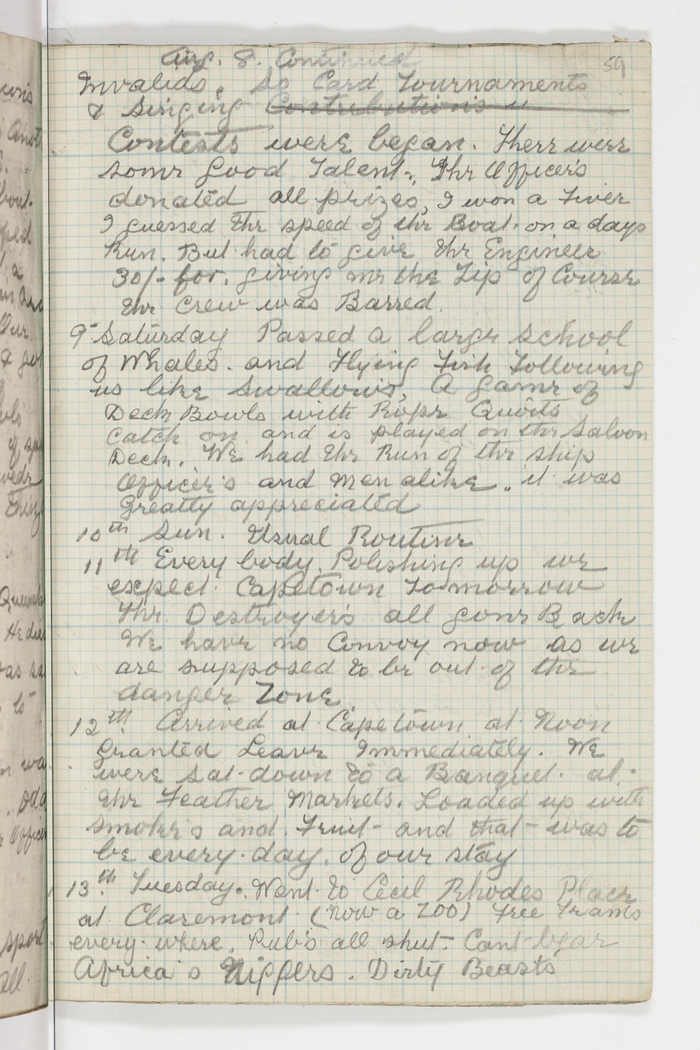 59
Aug. 8. Continued
Invalids. So Card Tournaments
& Singing Contributions
Contests were began. There were
some Good Talent. The Officer's
donated all prizes, I won a Fiver
I guessed the speed of the Boat. on a days
Run. But had to give the Engineer
30/- for. giving me the Tip of Course
the Crew was Barred.
9th Saturday Passed a large School
of Whales. and Flying Fish Following
us like Swallows, A game of
Deck Bowls with Rope Quoits
Catch on and is played on the Saloon
Deck. We had the Run of the ship
Officer's and Men alike. it was
Greatly appreciated
10th Sun. Usual Routine
11th Every body. Polishing up we
expect. Capetown To-morrow
The Destroyer's all gone Back
We have no Convoy now as we
are supposed to be out of the
danger Zone.
12th. Arrived at Capetown at Noon
Granted Leave Immediately. We
were Sat-down to a Banquet. at.
the Feather Markets. Loaded up with
smoke's and Fruit - and that - was to
be every-day. of our stay
13th. Tuesday. Went to Cecil Rhodes Place
at Claremont (Now a ZOO) Free Trams
every where. Pub's all shut. Cant bear
Africa's Nippers. Dirty Beasts